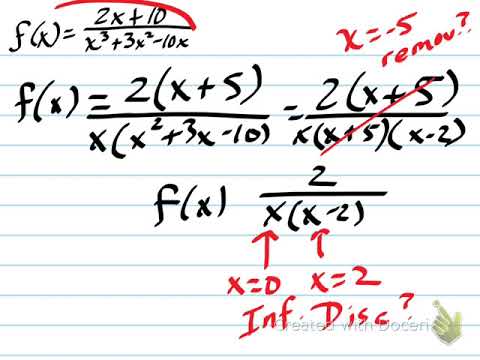 f(x) = (2x+10)/(x³+3x²-10x)
x=-5
remov?
f(x) = 2(x+5)/(x(x²+3x-10)) = 2(x+5)/(x(x+5)(x-2))
f(x) 2/(x(x-2))
x=0 x=2
Inf. Disc?
Created with Doceri